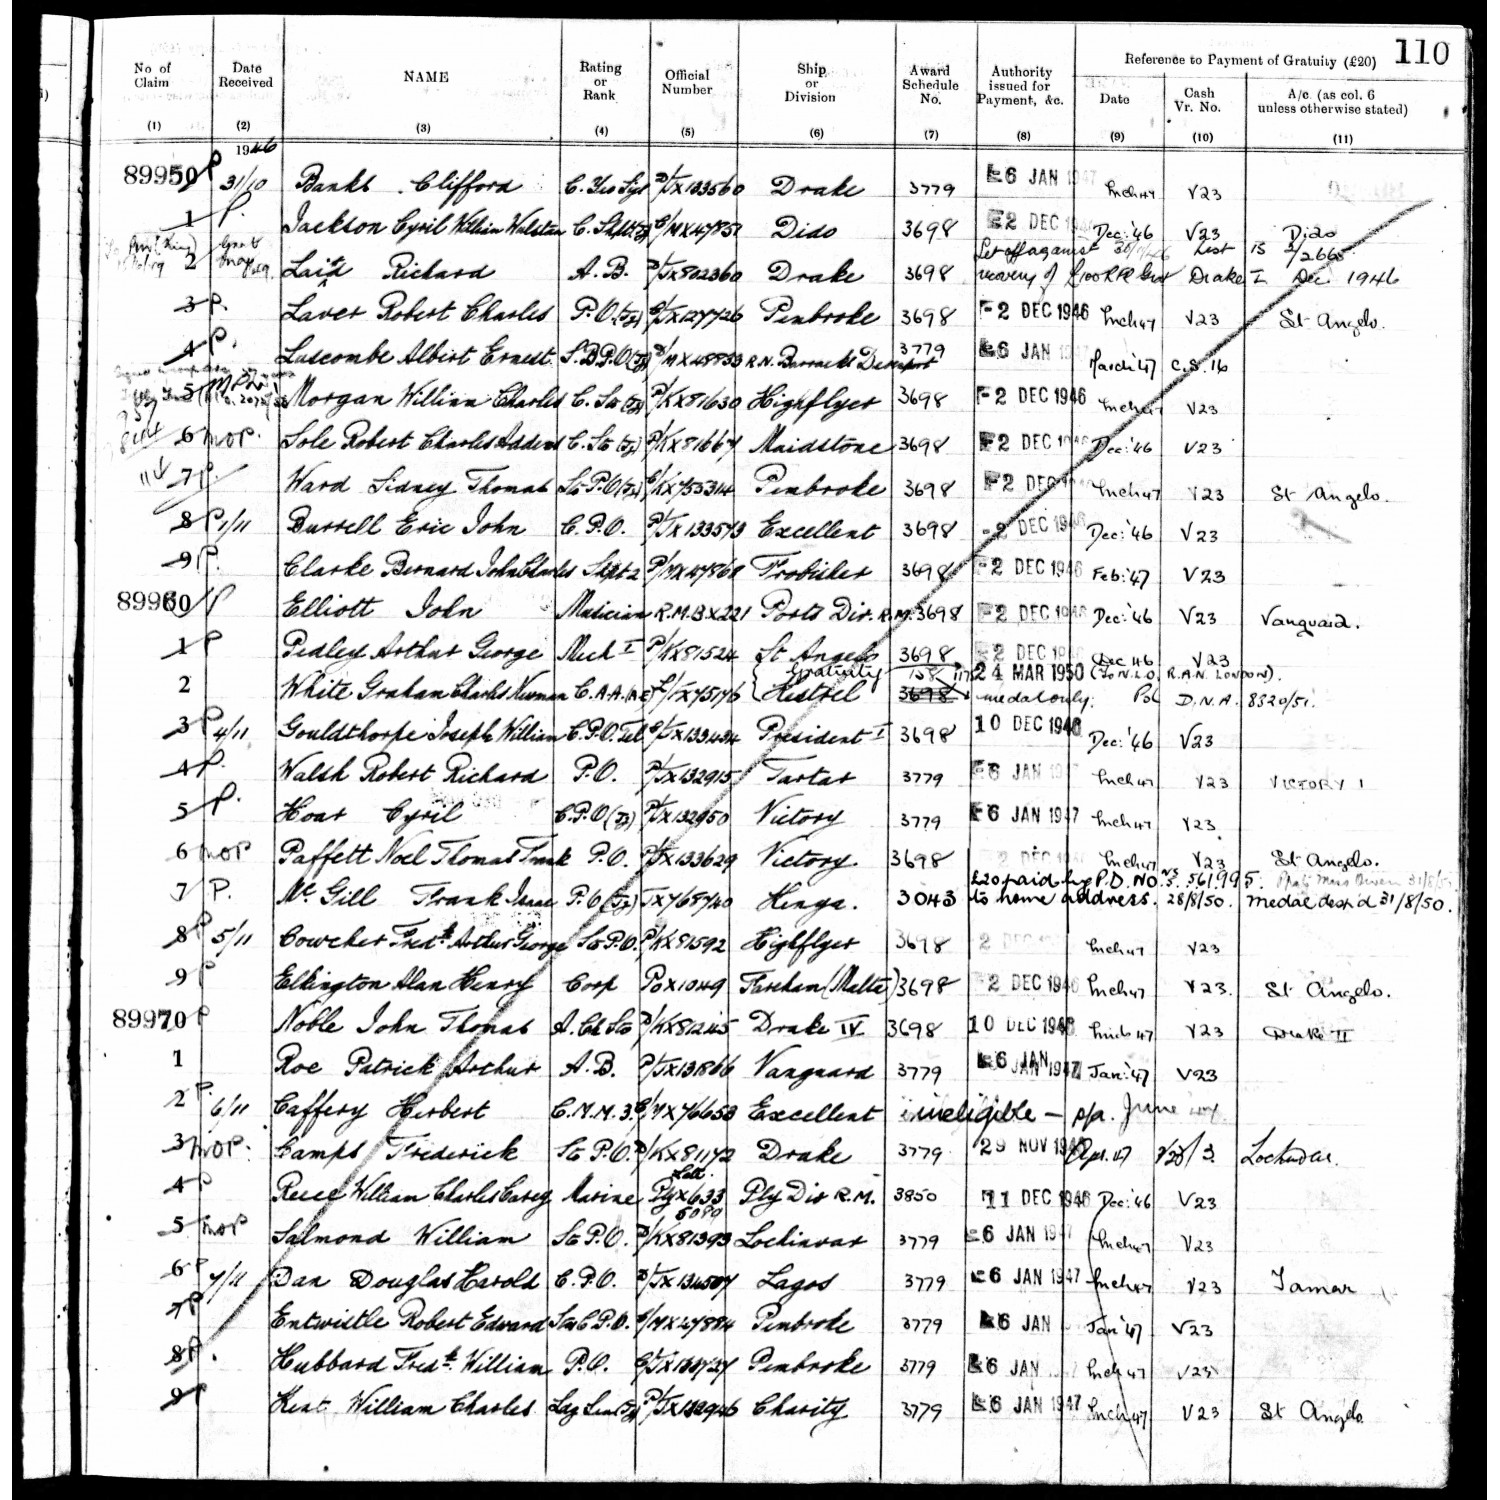 110
No of Claim Date Received NAME Rating or Rank Official Number Ship or Division Award Schedule No. Authority issued for Payment, &c. Reference to Payment of Gratuity (£20)
Date Cash Vr. No. A/c. (as col. 6 unless otherwise stated)
(1) (2) (3) (4) (5) (6) (7) (8) (9) (10) (11)
1946
89950 P 31/10 Banks Clifford C. Yeo Sigs D/JX133560 Drake 3779 6 JAN 1947 Inch 47 V23
1 P. Jackson Cyril William Walstan C. Shpt. C/MX47851 Dido 3698 2 DEC 1946 Dec: '46 V23 Dido
2 Laird Richard A.B. Drake 3698 Set off against recovery of £100 Drake I Dec. 1946
3 P. Laver Robert Charles P.O. (Ty) C/JX127726 Pembroke 3698 -2 DEC 1946 Inch 47 V23 St Angelo.
4 P. Luscombe Albert Ernest S.B.P.O (Ty) D/MX48833 R.N. Barracks Devonport 3779 6 JAN March '47 C.S. 16
5 Morgan William Charles C. Sto (Ty) P/KX81630 Highflyer 3698 -2 DEC 1946 Inch 47 V23
6 mop. Sole Robert Charles Addens C. Sto (Ty) P/KX81667 Maidstone 3698 2 DEC 1946 Dec: '46 V23
7 P. Ward Sidney Thomas Sto P.O (Ty) Pembroke 3698 2 DEC Inch 47 V23 St Angelo.
8 P 1/11 Burrell Eric John C.P.O. P/JX133573 Excellent 3698 -2 DEC 1946 Dec: '46 V23
9 P. Clarke Bernard John Charles Shpt 2 P/MX47868 Frobisher 3698 2 DEC 1946 Feb: '47 V23
89960 P Elliott John Musician R.M.B X221 Ports Div. R.M. 3698 2 DEC 1946 Dec: '46 V23 Vanguard.
1 P Pedley Arthur George Mech I P/KX81524 St Angelo 3698 2 DEC Dec 46 V23
2 White Graham Charles Newman C.A.A. Kestrel Gratuity 3698 24 MAR 1950 (To N.L.O. R.A.N. LONDON). medal only. D.N.A. 8320/51.
3 P 4/11 Gouldthorpe Joseph William C.P.O. Tel C/JX133434 President I 3698 10 DEC 1946 Dec: '46 V23
4 P. Walsh Robert Richard P.O. P/JX132915 Tartar 3779 6 JAN Inch 47 V23 VICTORY I
5 P. Hoar Cyril C.P.O (Ty) P/JX132950 Victory 3779 6 JAN 1947 Inch 47 V23
6 mop Paffett Noel Thomas Frank P.O. P/JX133629 Victory. 3698 2 DEC Inch 47 V23 St Angelo.
7 P. Mc Gill Frank Isaac P.O (Ty) JX768740 Hinga. 3043 £20 paid by P.D. No. 561995. to home address. 28/8/50. Medal desp'd 31/8/50.
8 P 5/11 Cowcher Fredk Arthur George Sto P.O. P/KX81592 Highflyer 3698 2 DEC Inch 47 V23
9 P Elkington Alan Henry Corp Po X1049 Fareham (Malta) 3698 2 DEC 1946 Inch 47 V23. St Angelo.
89970 P Noble John Thomas A. Ch Sto P/KX81245 Drake IV 3698 10 DEC 1946 Inch 47 V23 Drake II
1 Roe Patrick Arthur A.B. P/JX131866 Vanguard 3779 6 JAN JAN 1947 Jan: '47 V23
2 P. 6/11 Caffery Herbert C.M.M. 3. C/MX76653 Excellent ineligible — p/a. June
3 mop. Camps Frederick Sto P.O. D/KX81172 Drake 3779 29 NOV 1946 Apr. 47 Lochinvar.
4 P Reece William Charles Carey Marine Ply X633 Ply Div R.M. 3850 11 DEC 1946 Dec: '46 V23
5 mop Salmond William Sto P.O. D/KX81393 Lochinvar 3779 6 JAN 1947 Inch 47 V23
6 P 7/11 Dan Douglas Harold C.P.O. D/JX134507 Lagos 3779 6 JAN 1947 Inch 47 V23 Tamar
7 P Entwistle Robert Edward C.P.O. C/MX47884 Pembroke 3779 6 JAN Jan '47 V23
8 P. Hubbard Fredk. William P.O. Pembroke 3779 6 JAN Inch 47 V23
9 P Kent William Charles Ldg Sea (Ty) P/JX132946 Charity 3779 6 JAN 1947 Inch 47 V23 St Angelo